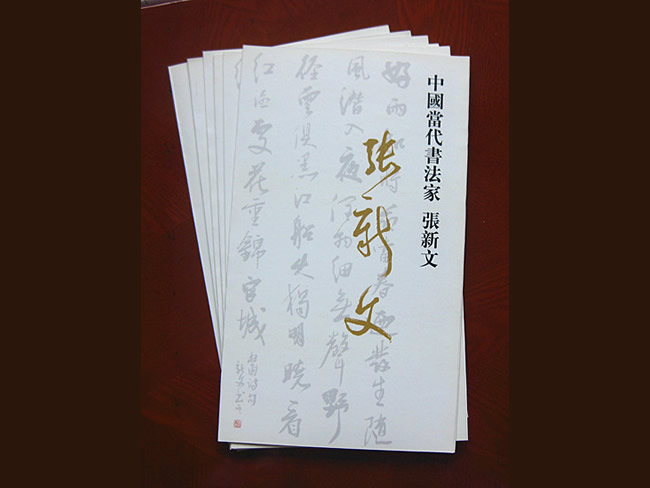 中國當代書法家 張新文
張新文
好雨知時節當春廼發生隨
風潛入夜潤物細無聲野
徑雲俱黑江船火獨明曉看
紅濕處花重錦官城
杜甫詩句
新文書